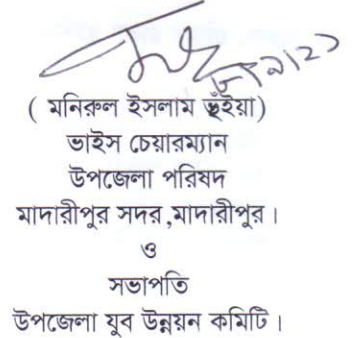 ( মনিরুল ইসলাম ভূঁইয়া)
ভাইস চেয়ারম্যান
উপজেলা পরিষদ
মাদারীপুর সদর ,মাদারীপুর।
ও
সভাপতি
উপজেলা যুব উন্নয়ন কমিটি।